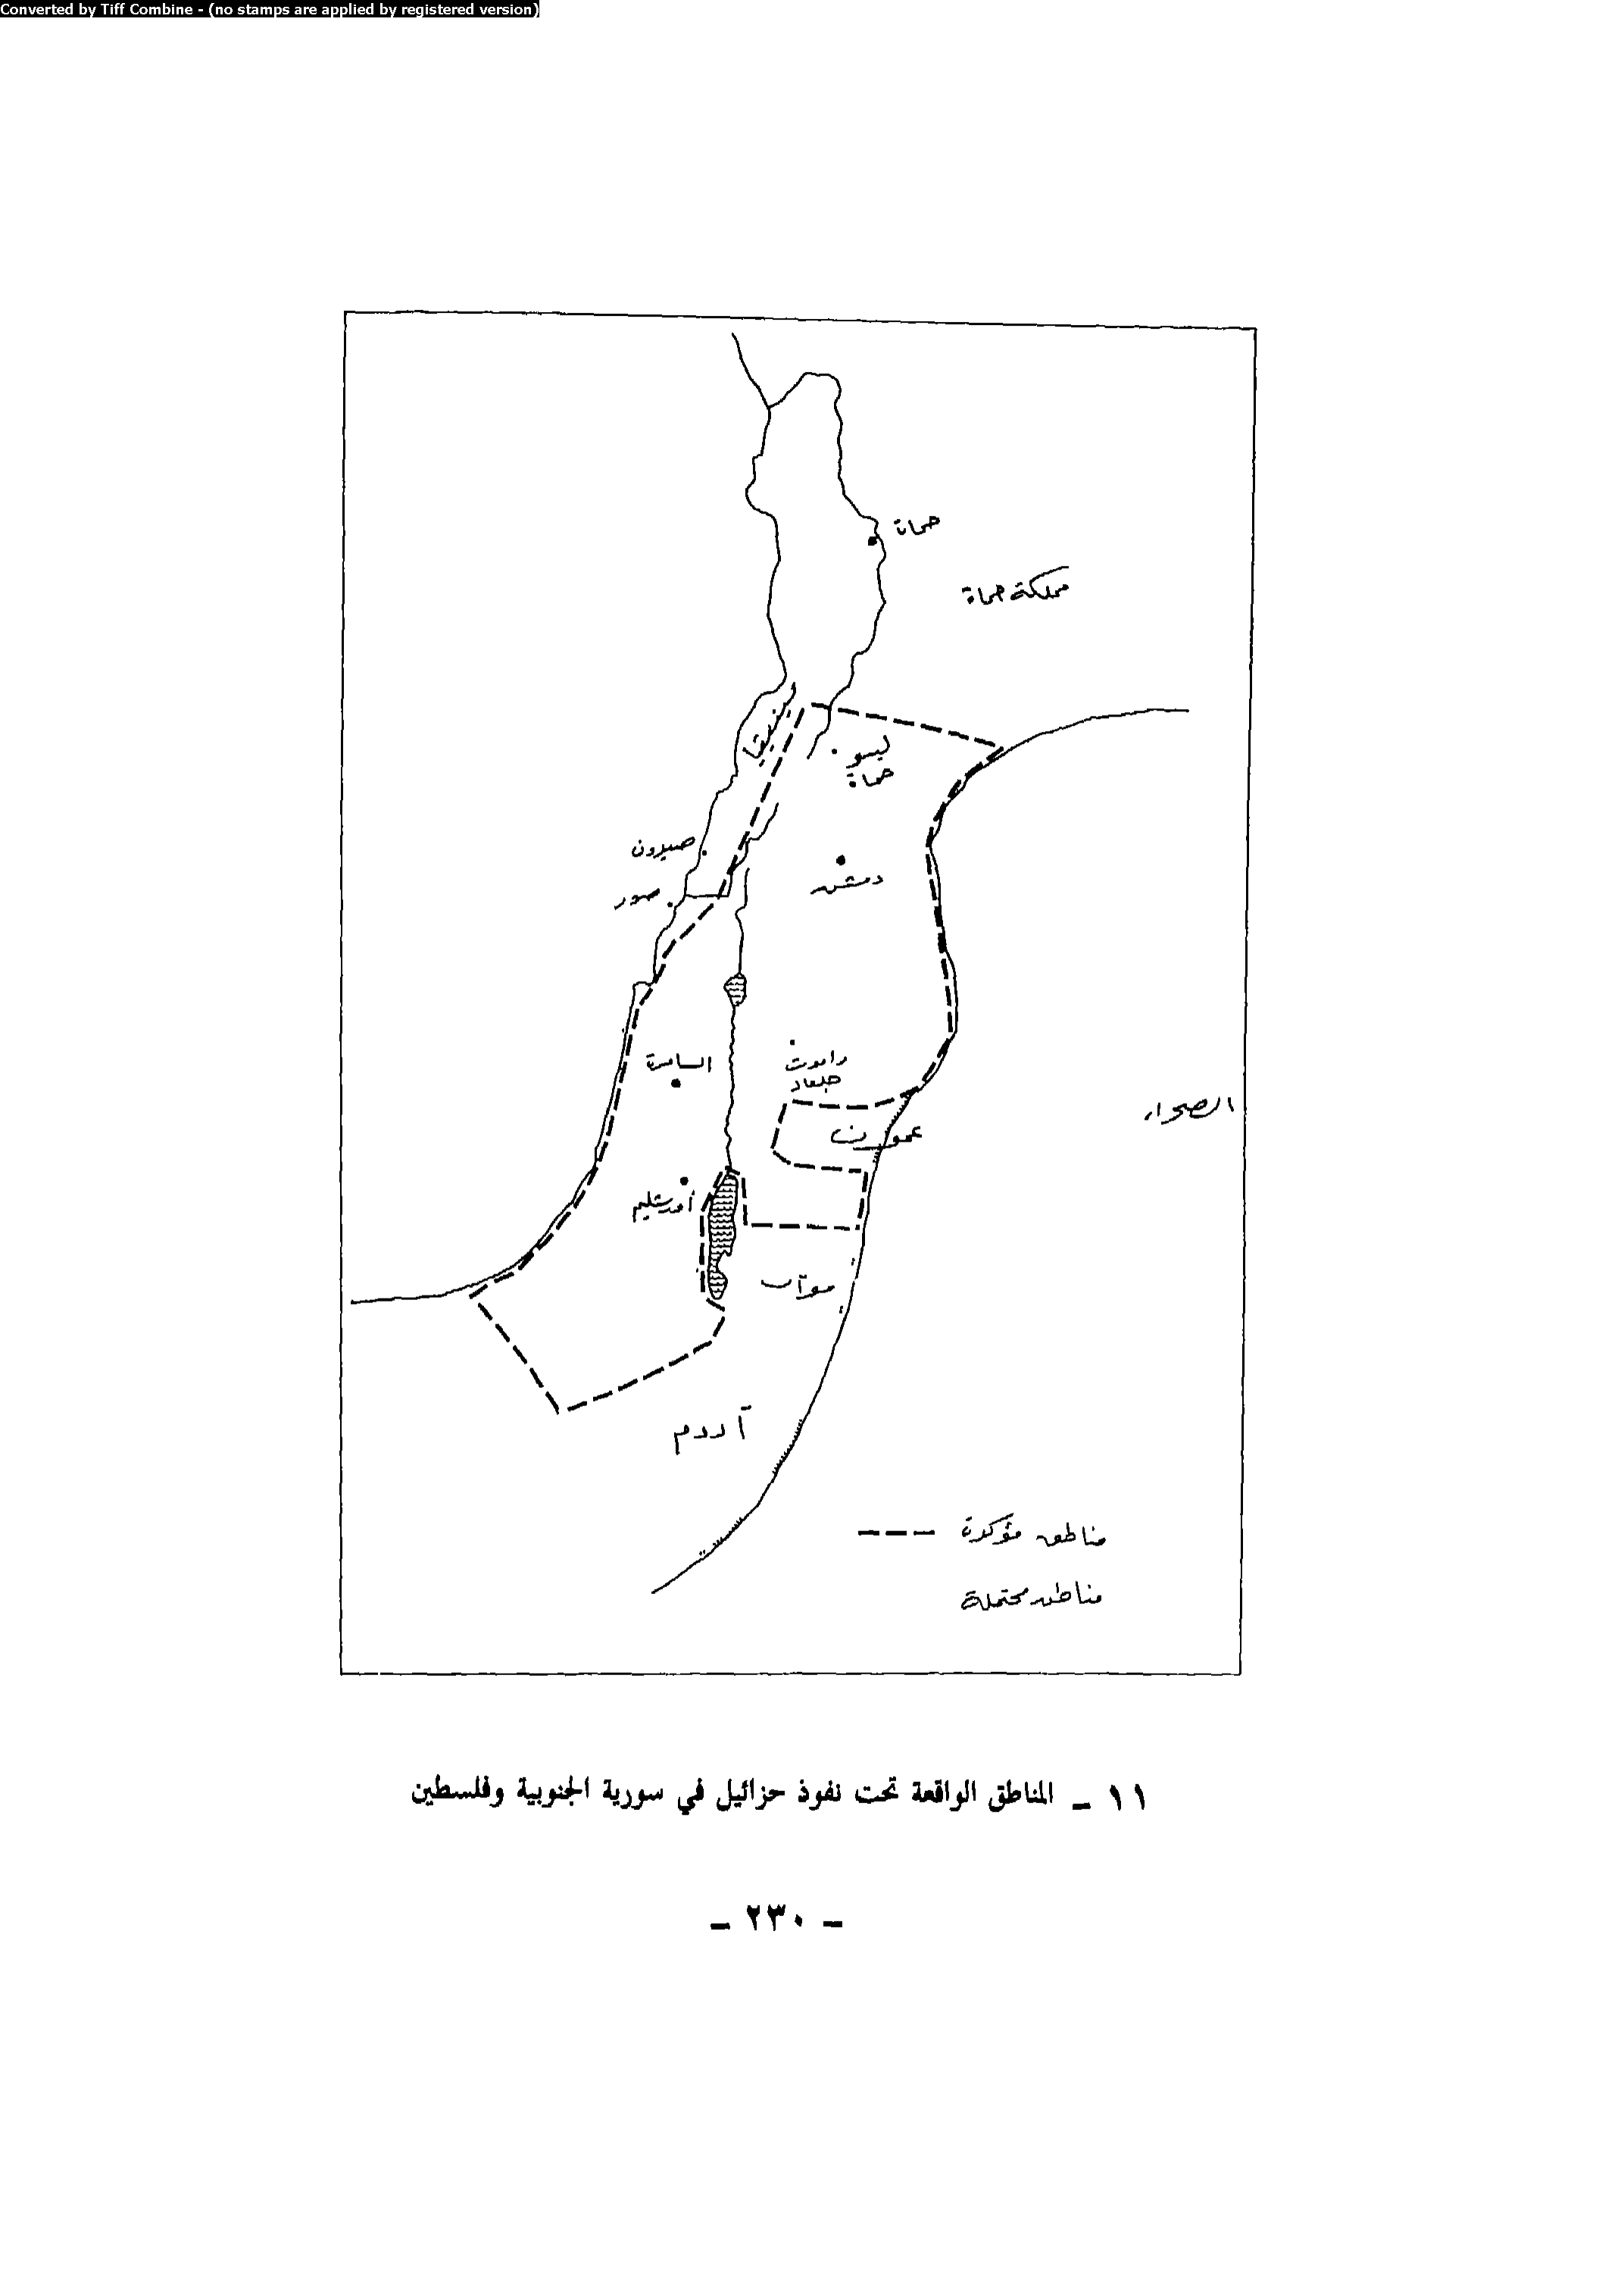 Converted by Tiff Combine - (no stamps are applied by registered version)
حماة
مملكة حماة
ليبو
حماة
صيدون
دمشق
صور
راموت
جلعاد
السامرة
الصحراء
عمون
أورشليم
موآب
آدوم
مناطق مؤكدة
مناطق محتملة
١١ ـ المناطق الواقعة تحت نفوذ حزائيل في سورية الجنوبية وفلسطين
ـ ٢٣٠ ـ